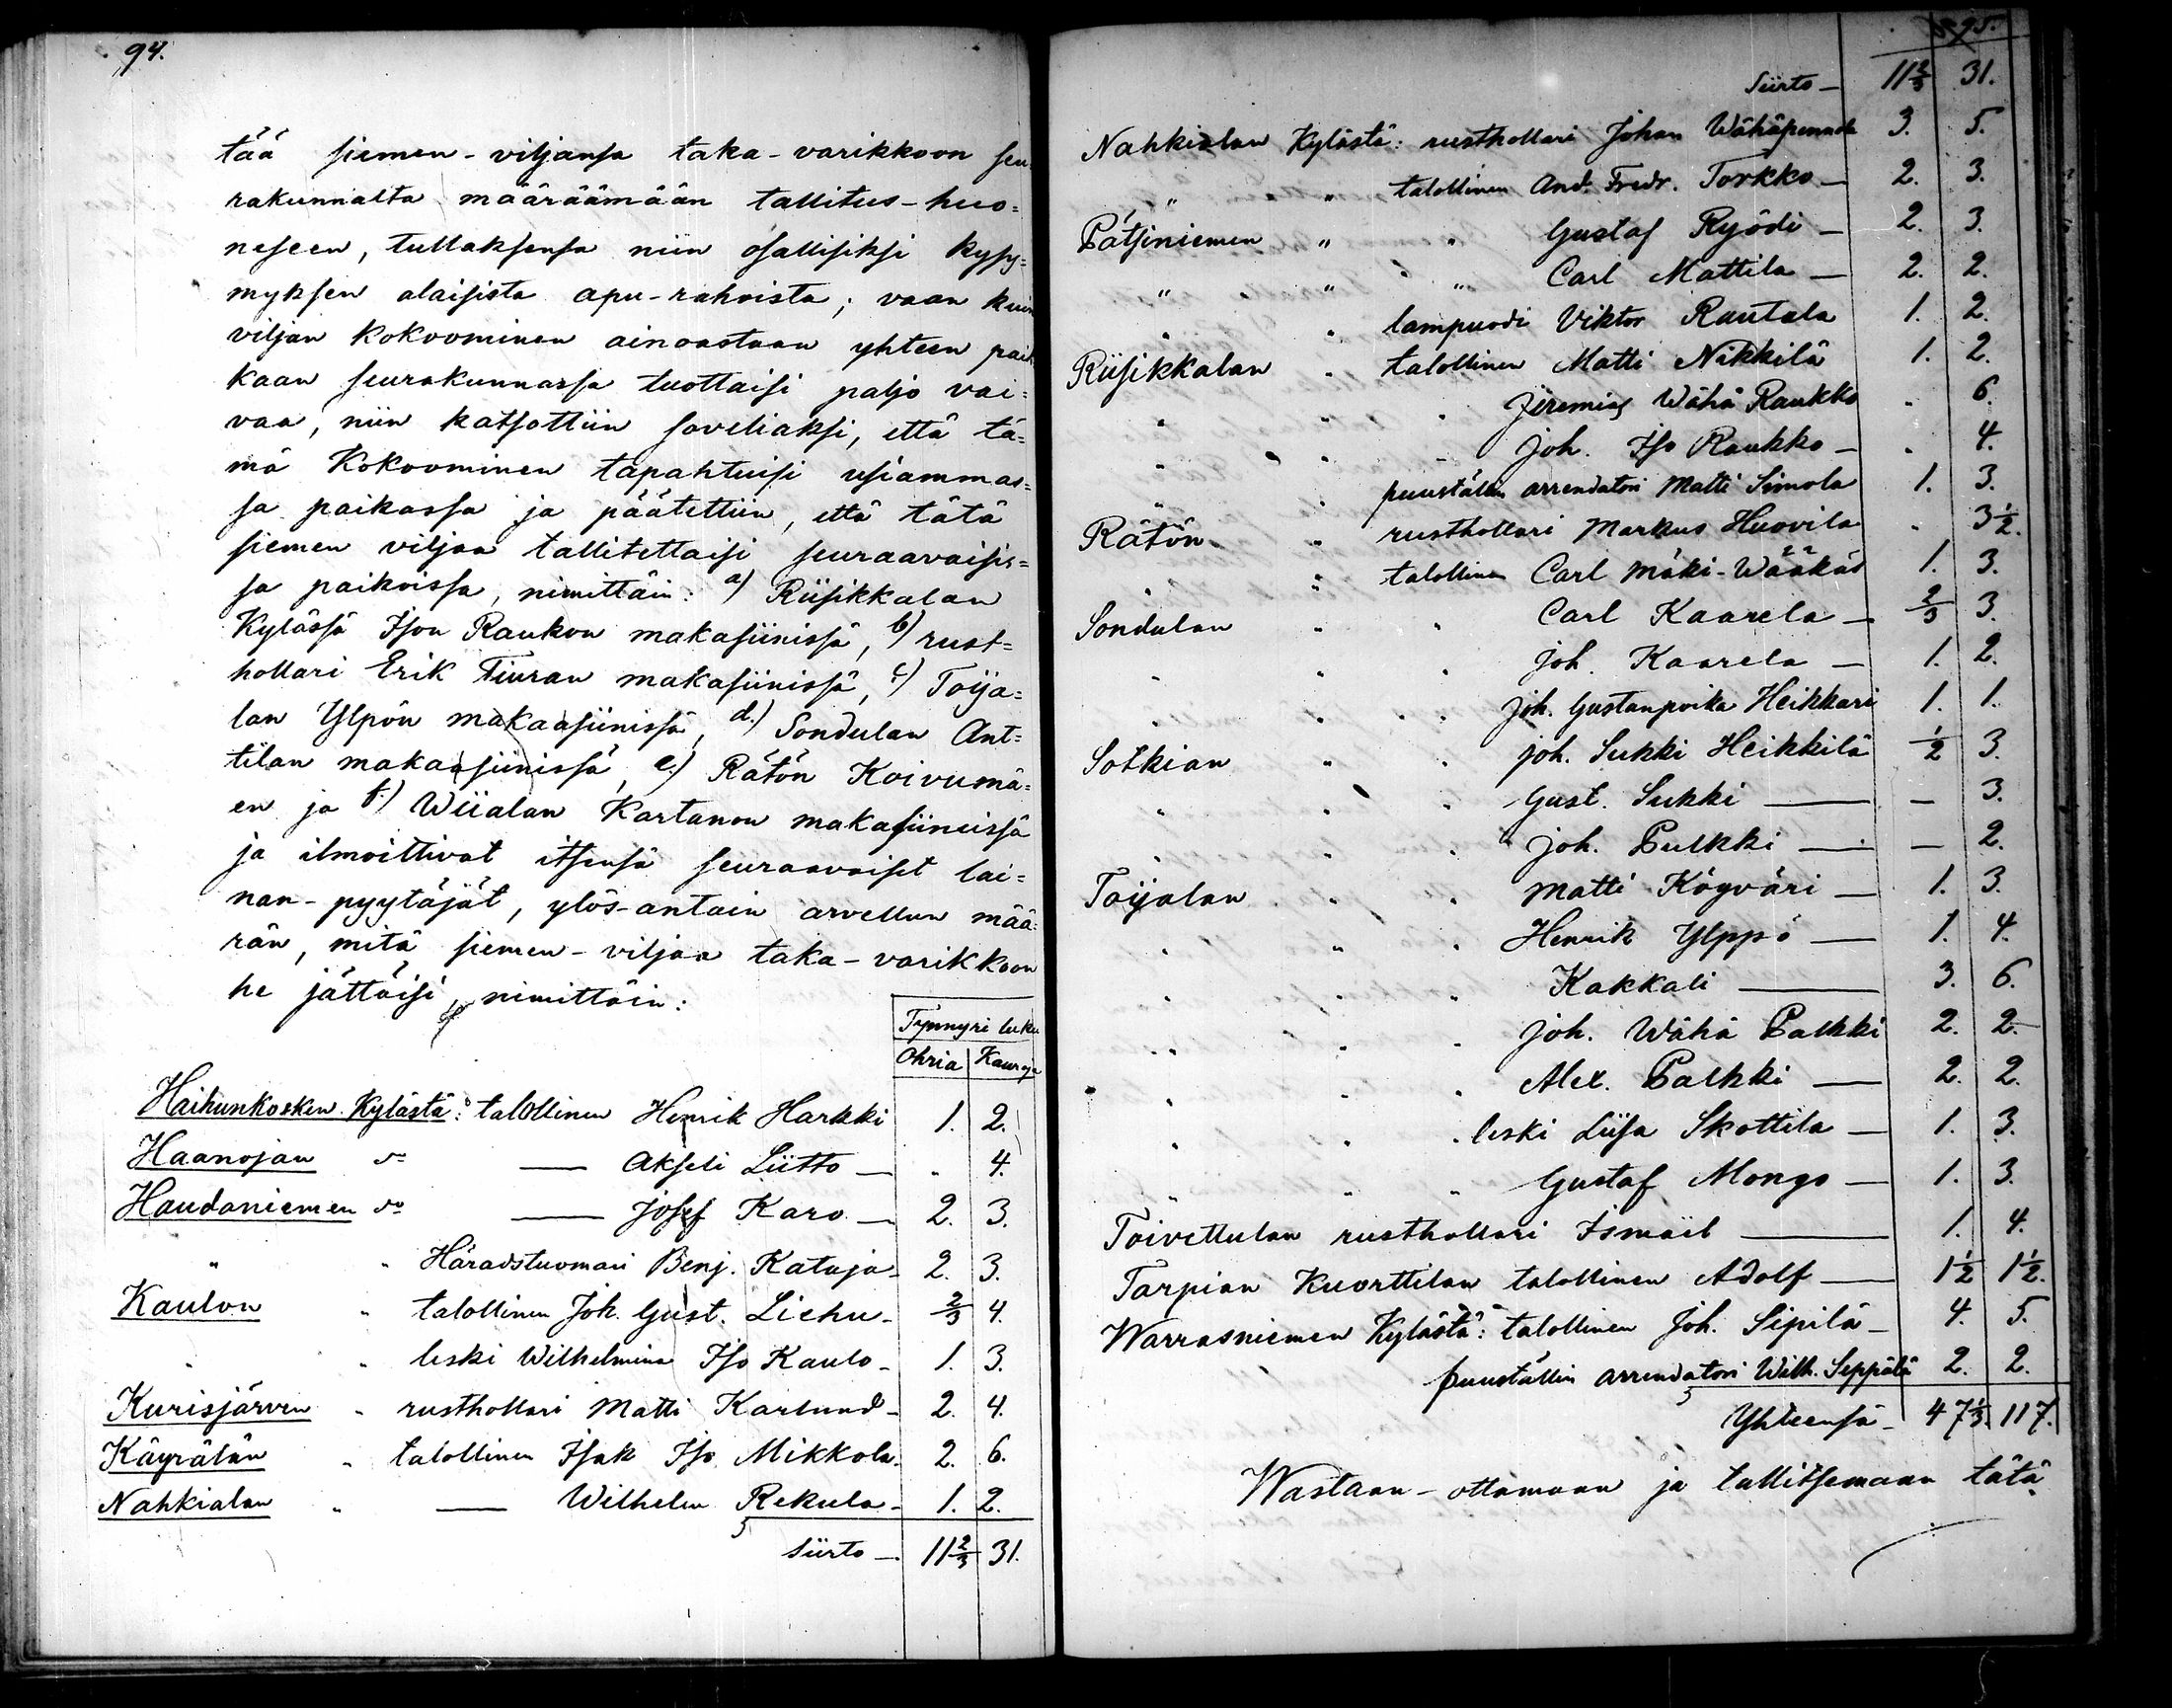 94.
tää siemen-viljansa taka-varikkoon seu
rakunnalta määräämään tallitus-huo=
neseen, tullaksensa niin osallisiksi kysy=
myksen alaisista apu-rahoista; vaan kuin
viljan kokoominen ainoastaan yhteen paik
kaan seurakunnassa tuottaisi paljo vai=
vaa, niin katsottiin soveliaksi, että tä=
mä kokoominen tapahtuisi usiammas=
sa paikassa ja päätettiin, että tätä
siemen viljaa tallitettaisi seuraavaisis=
sa paikoissa, nimittäin: a) Riisikkalan
Kylässä Ison Raukon makasiinissä, b) rust=
hollari Erik Tiuran makasiinissä, c) Toija=
lan Ylpön makaasiinissä, d.) Sondulan Ant=
tilan makaasiinissä, e.) Rätön Koivumä=
en ja f.) Wiialan Kartanon makasiineissä
ja ilmoittivat itsensä seuraavaiset lai=
nan-pyytäjät, ylös-antain arvellun mää=
rän, mitä siemen-viljaa taka-varikkoon
he jättäisi, nimittäin:
Tynnyri luku
Ohria Kauroja
Haihunkosken Kylästä: talollinen Henrik Harkki 1. 2.
Haanojan do — Akseli Liitto — " 4.
Haudaniemen do — Josef Karo — 2. 3.
" " Häradstuomari Benj. Kataja - 2. 3.
Kaulon " talollinen Joh. Gust. Liehu - 2/3 4.
" " leski Wilhelmina Iso Kaulo - 1. 3.
Kurisjärven " rusthollari Matti Karlund - 2. 4.
Käyrälän " talollinen Isak Iso Mikkola - 2. 6.
Nahkialan " — Wilhelm Rekula - 1. 2.
Siirto — 11 2/3 31.
95.
Siirto — 11 2/3 31.
Nahkialan Kylästä: rusthollari Johan Wähäpennola 3. 5.
" " talollinen And. Fredr. Torkko — 2. 3.
Pätsiniemen " " Gustaf Ryödi — 2. 3.
" " " Carl Mattila — 2. 2.
" " lampuodi Viktor Rautala 1. 2.
Riisikkalan " talollinen Matti Nikkilä 1. 2.
" " " Jeremias Wähä Raukko " 6.
" " " Joh. Iso Raukko — " 4.
" " puuställin arrendatori Matti Simola 1. 3.
Rätön " rusthollari Markus Huovila " 3 1/2.
" " talollinen Carl Mäki-Wääkäs 1. 3.
Sondulan " " Carl Kaarela — 2/3 3.
" " " Joh. Kaarela — 1. 2.
" " " Joh. Gustanpoika Heikkari 1. 1.
Sotkian " " Joh. Sukki Heikkilä 1/2 3.
" " " Gust. Sukki — — 3.
" " " Joh. Pulkki — — 2.
Toijalan " " Matti Kögväri — 1. 3.
" " " Henrik Ylppö — 1. 4.
" " " Kakkali — 3. 6.
" " " Joh. Wähä Palkki 2. 2.
" " " Alex. Palkki — 2. 2.
" " " leski Liisa Skottila — 1. 3.
" " " Gustaf Mongo — 1. 3.
Toivettulan rusthollari Ismäel — 1. 4.
Tarpian Kuorttilan talollinen Adolf — 1 1/2 1 1/2.
Warrasniemen Kylästä: talollinen Joh. Sipilä — 4. 5.
puuställin arrendatori Wilh. Seppälä 2. 2.
Yhteensä - 47 1/3 117.
Wastaan-ottamaan ja tallitsemaan tätä